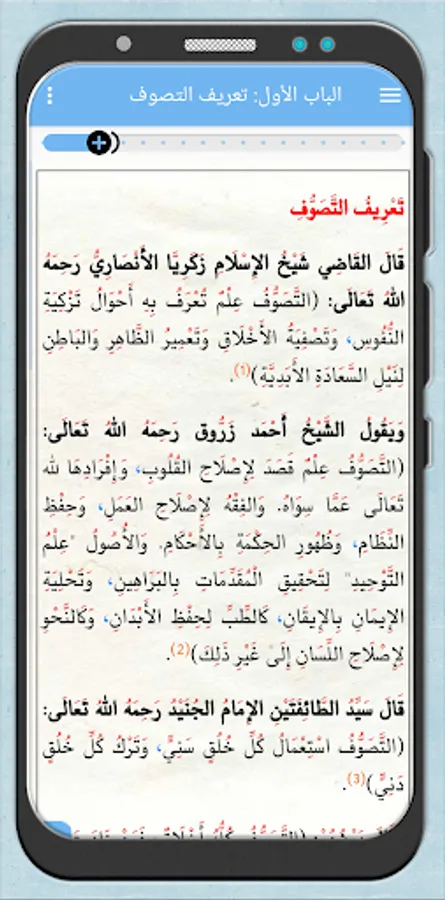 الباب الأول: تعريف التصوف
تَعْرِيفُ التَّصَوُّفِ
قَالَ القَاضِي شَيْخُ الإِسْلَامِ زَكَرِيَّا الأَنْصَارِيُّ رَحِمَهُ
اللهُ تَعَالَى: (التَّصَوُّفُ عِلْمٌ تُعْرَفُ بِهِ أَحْوَالُ تَزْكِيَةِ
النُّفُوسِ، وَتَصْفِيَةُ الأَخْلَاقِ وَتَعْمِيرُ الظَّاهِرِ وَالبَاطِنِ
لِنَيْلِ السَّعَادَةِ الأَبَدِيَّةِ)(1).
وَيَقُولُ الشَّيْخُ أَحْمَد زَرُّوق رَحِمَهُ اللهُ تَعَالَى:
(التَّصَوُّفُ عِلْمٌ قَصَدَ لِإِصْلَاحِ القُلُوبِ، وَإِفْرَادِهَا لله
تَعَالَى عَمَّا سِوَاهُ. وَالفِقْهُ لِإِصْلَاحِ العَمَلِ، وَحِفْظِ
النِّظَامِ، وَظُهُورِ الحِكْمَةِ بِالأَحْكَامِ. وَالأُصُولُ "عِلْمُ
التَّوْحِيدِ" لِتَحْقِيقِ الْمُقَدِّمَاتِ بِالبَرَاهِينِ، وَتَحْلِيَةِ
الإِيمَانِ بِالإِيقَانِ، كَالطِّبِّ لِحِفْظِ الأَبْدَانِ، وَكَالنَّحْوِ
لِإِصْلَاحِ اللِّسَانِ إِلَى غَيْرِ ذَلِكَ)(2).
قَالَ سَيِّدُ الطَّائِفَتَيْنِ الإِمَامُ الجُنَيْدُ رَحِمَهُ اللهُ تَعَالَى:
(التَّصَوُّفُ اسْتِعْمَالُ كُلِّ خُلُقٍ سَنِيٍّ، وَتَرْكُ كُلِّ خُلُقٍ
دَنِيٍّ)(3).